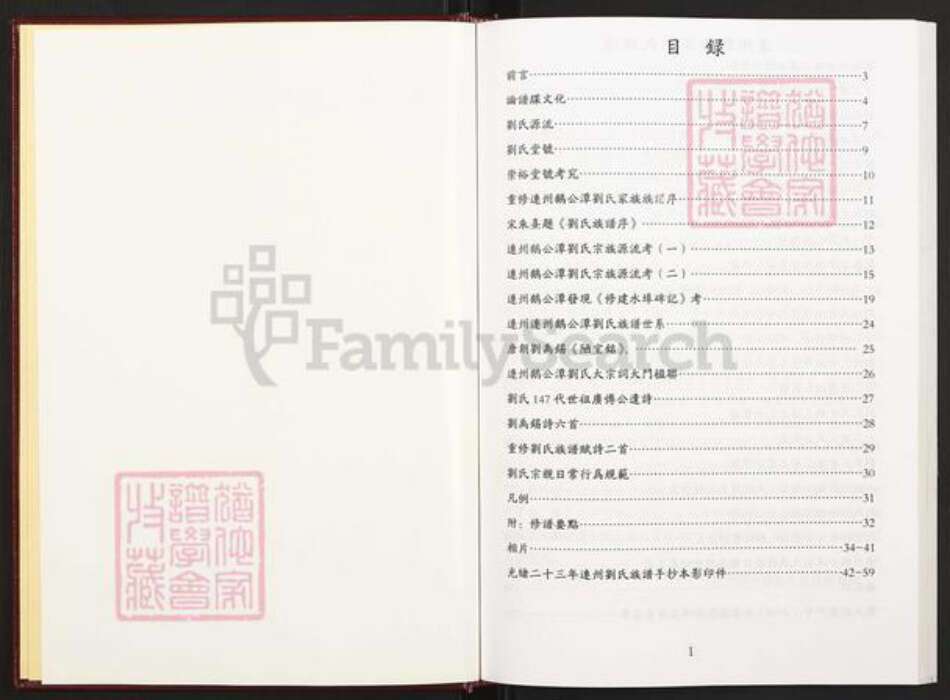 目 録
前言 3
論譜牒文化 4
劉氏源流 7
劉氏堂號 9
崇裕堂號考究 10
重修連州鵝公潭劉氏家族族記序 11
宋朱熹題《劉氏族譜序》 12
連州鵝公潭劉氏宗族源流考（一） 13
連州鵝公潭劉氏宗族源流考（二） 15
連州鵝公潭發現《修建水埠碑記》考 19
連州連州鵝公潭劉氏族譜世系 24
唐朝劉禹錫《陋室銘》 25
連州鵝公潭劉氏大宗詞大門楹聯 26
劉氏147代世祖廣傳公遺詩 27
劉禹錫詩六首 28
重修劉氏族譜賦詩二首 29
劉氏宗親日常行爲規範 30
凡例 31
附：修譜要點 32
相片 34-41
光緒二十三年連州劉氏族譜手抄本影印件 42-59
1
FamilySearch